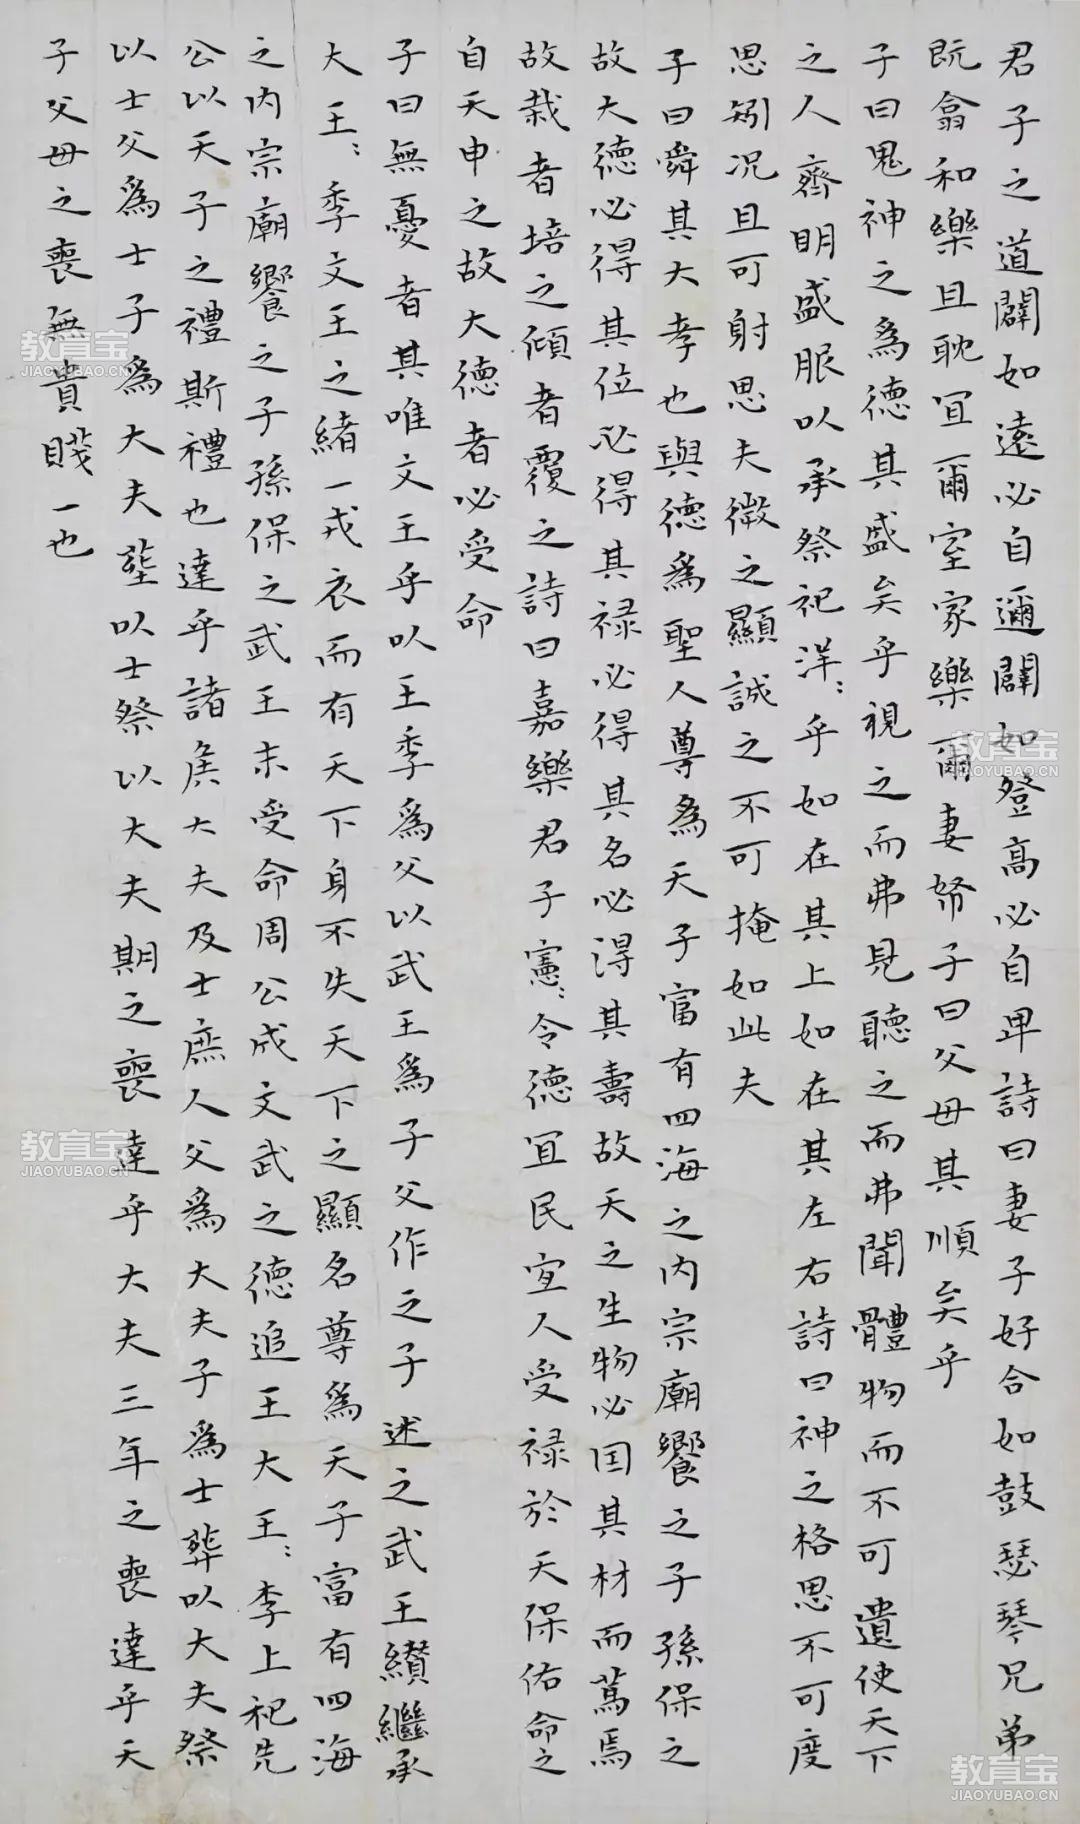 君子之道闢如遠必自邇闢如登高必自卑詩曰妻子好合如鼓瑟琴兄弟
既翕和樂且耽宜爾室家樂爾妻帑子曰父母其順矣乎
子曰鬼神之為德其盛矣乎視之而弗見聽之而弗聞體物而不可遺使天下
之人齊明盛服以承祭祀洋:乎如在其上如在其左右詩曰神之格思不可度
思矧况且可射思夫微之顯誠之不可掩如此夫
子曰舜其大孝也與德為聖人尊為天子富有四海之内宗廟饗之子孫保之
故大德必得其位必得其禄必得其名必得其壽故天之生物必因其材而篤焉
故栽者培之傾者覆之詩曰嘉樂君子憲:令德宜民宜人受禄於天保佑命之
自天申之故大德者必受命
子曰無憂者其唯文王乎以王季為父以武王為子父作之子述之武王纘繼承
大王:季文王之緒一戎衣而有天下身不失天下之顯名尊為天子富有四海
之内宗廟饗之子孫保之武王末受命周公成文武之德追王大王:季上祀先
公以天子之禮斯禮也達乎諸侯大夫及士庶人父為大夫子為士葬以大夫祭
以士父為士子為大夫塟以士祭以大夫期之喪達乎大夫三年之喪達乎天
子父母之喪無貴賤一也
教育宝
JIAOYUBAO.CN
教育宝
JIAOYUBAO.CN
教育宝
JIAOYUBAO.CN
教育宝
JIAOYUBAO.CN